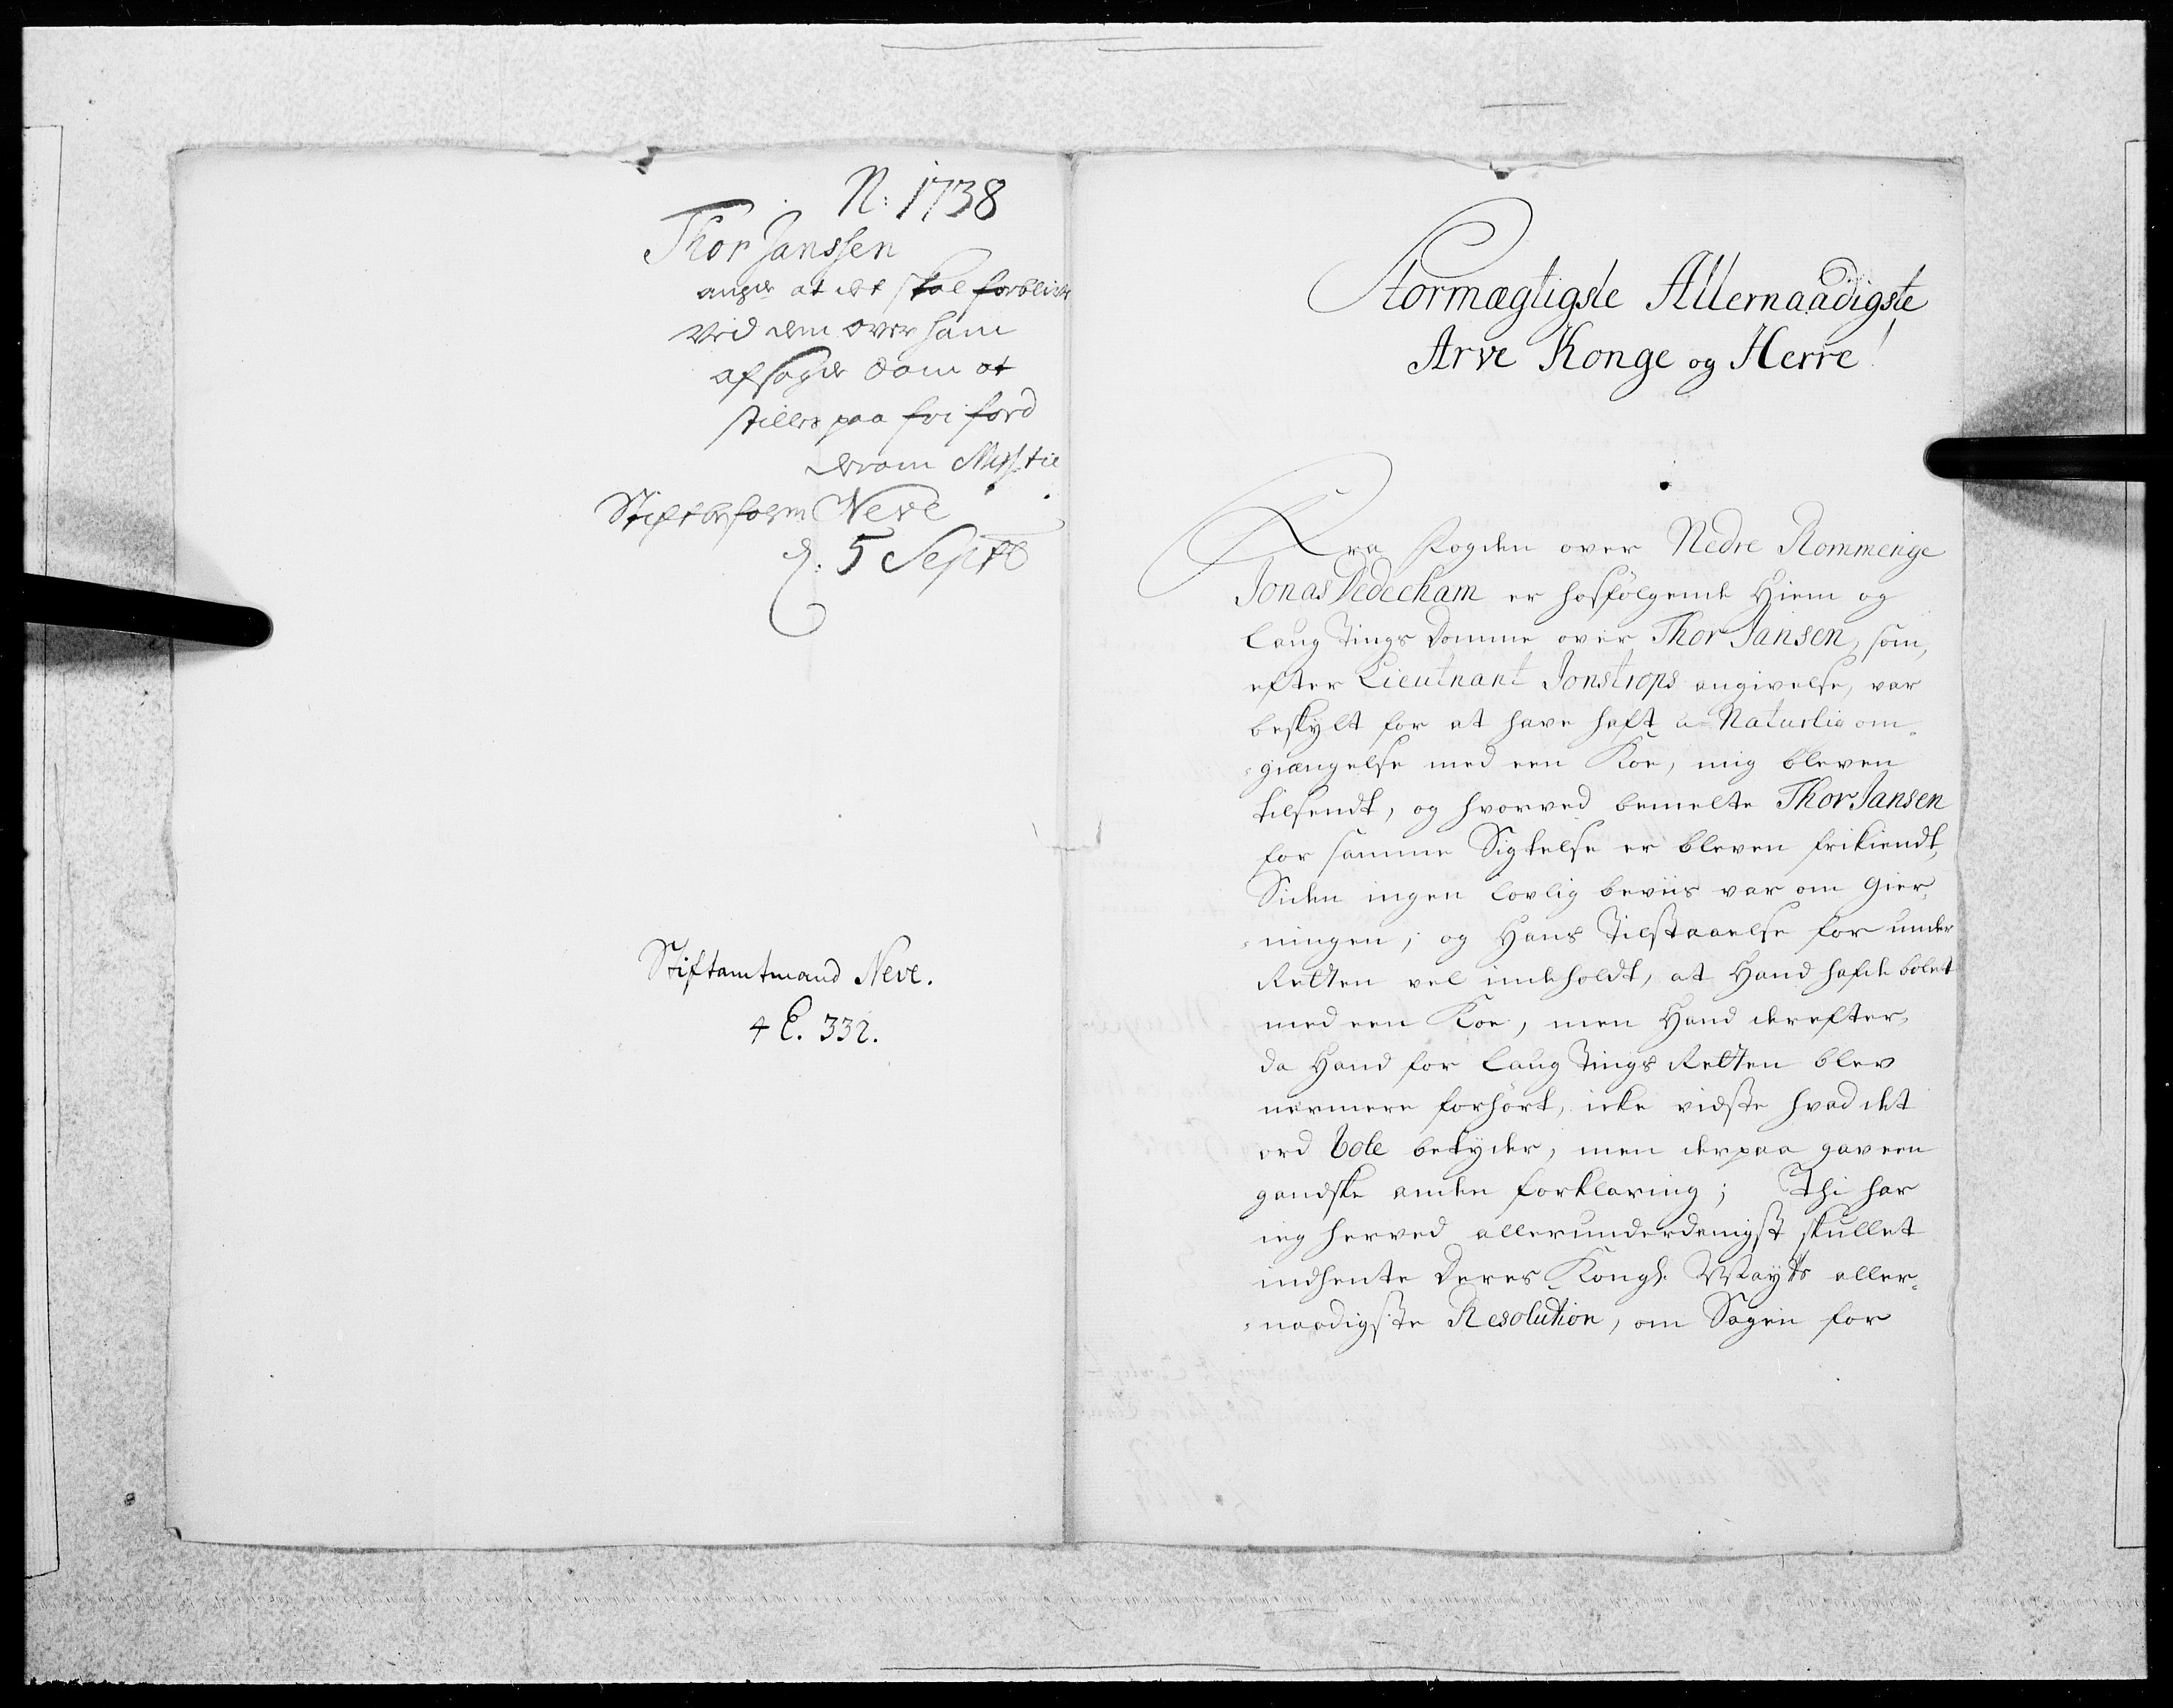 N: 1738
Thor Janssen
ang: at det skal forblive
Ved dem over ham
afsagde dom at
stilles paa fri ford
derom Miss: til
Stiftbefalm Neve
d. 5 Septb
Stiftamtmand Neve.
4 C. 332.
Stormægtigste Allernaadigste
Arve Konge og Herre!
Fra Fogden over Nedre Rommerige
Jonas Vedecham er hosfölgende Hiem og
Laug Tings Domme over Thor Jansen, som,
efter Lieutnant Jonstrops angivelse, var
beskylt for at have haft u-Naturlig om-
-giængelse med een Koe, mig bleven
tilsendt, og hvorved bemelte Thor Jansen
for samme Sigtelse er bleven frikiendt,
Siden ingen lovlig beviis var om Gier-
-ningen, og Hans Tilstaaelse for under
Retten vel indeholdt, at Hand hafde bolet
med een Koe, men Hand derefter,
da Hand for Laug Tings Retten blev
nermere forhört, icke vidste hvad det
ord bole betyder, men derpaa gav een
gandske anden forklaring; Thi har
ieg herved allerunderdanigst skullet
indhente Deres Kongl. Mayts aller-
-naadigste Resolution, om Sagen for